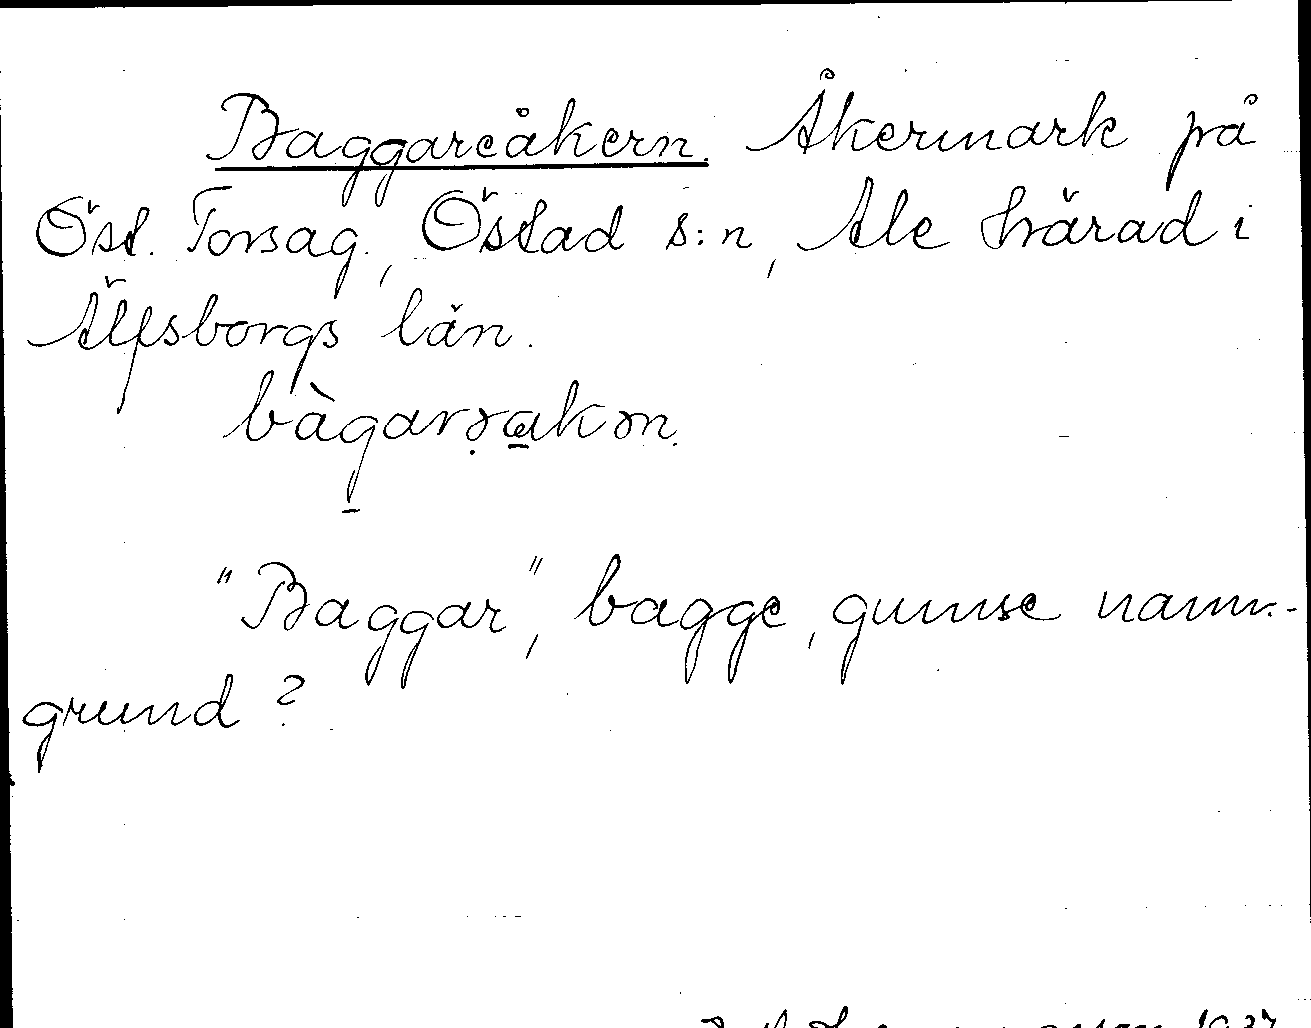 Baggareåkern. Åkermark på
Öst. Torsag., Östad s:n, Ale härad i
Älfsborgs län.
bàgarəakən.
"Baggar", bagge, gumse namn-
grund?
1937